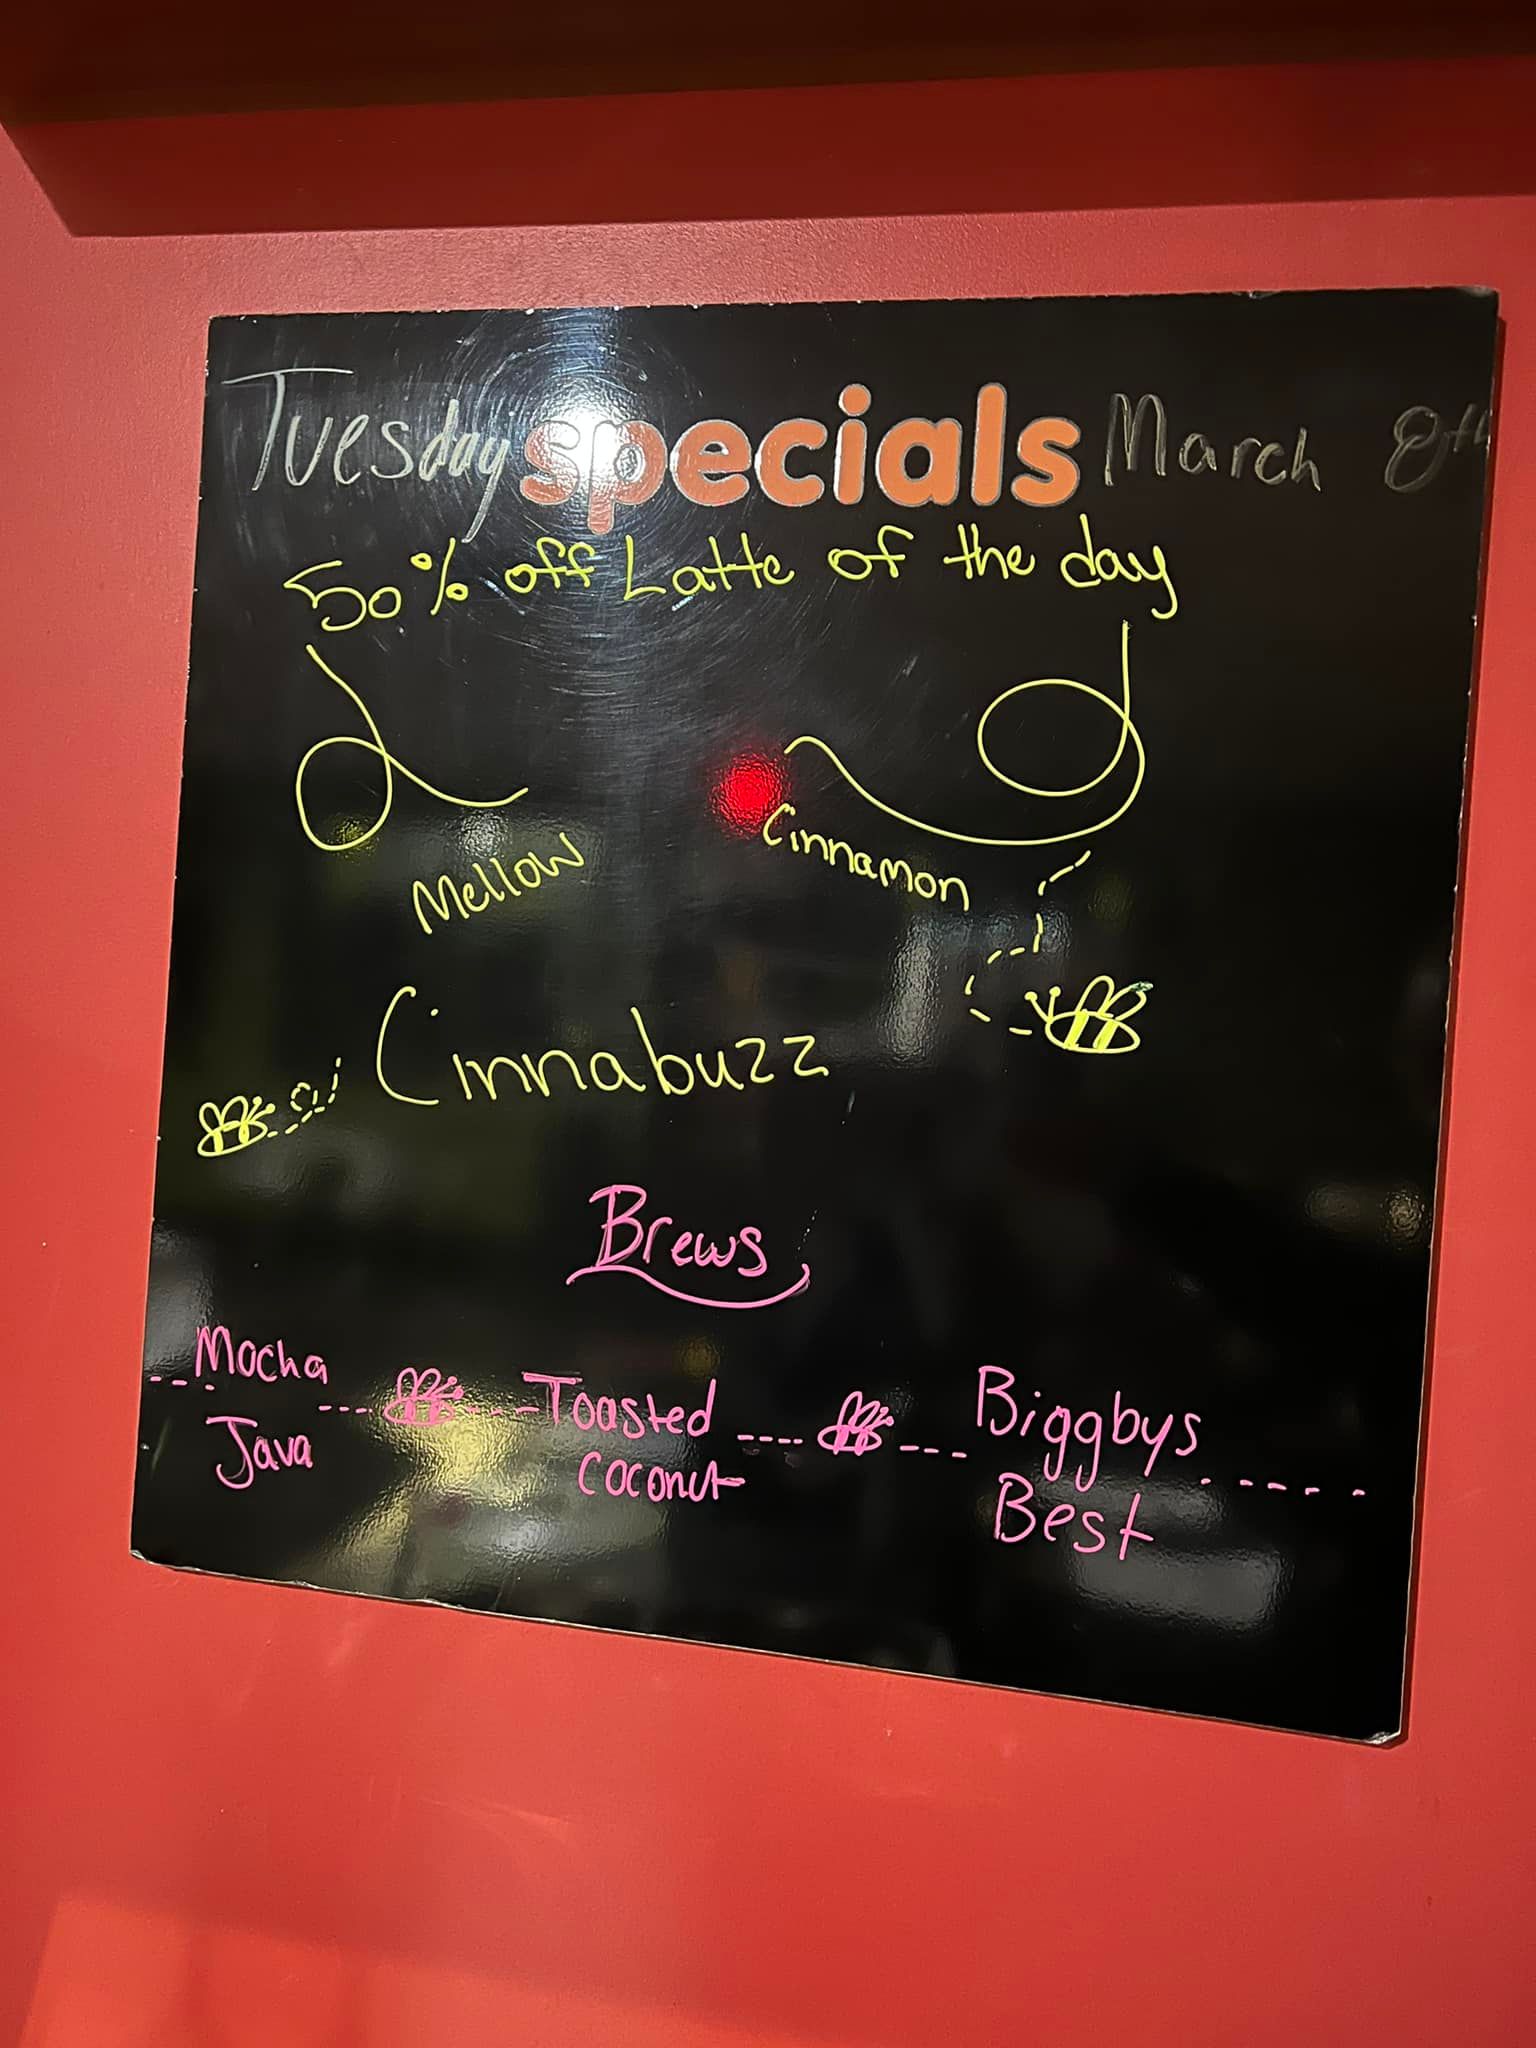 Tuesday specials March 8th
50% off Latte of the day
Mellow
Cinnamon
Cinnabuzz
Brews
Mocha
Java
Toasted
Coconut
Biggbys
Best